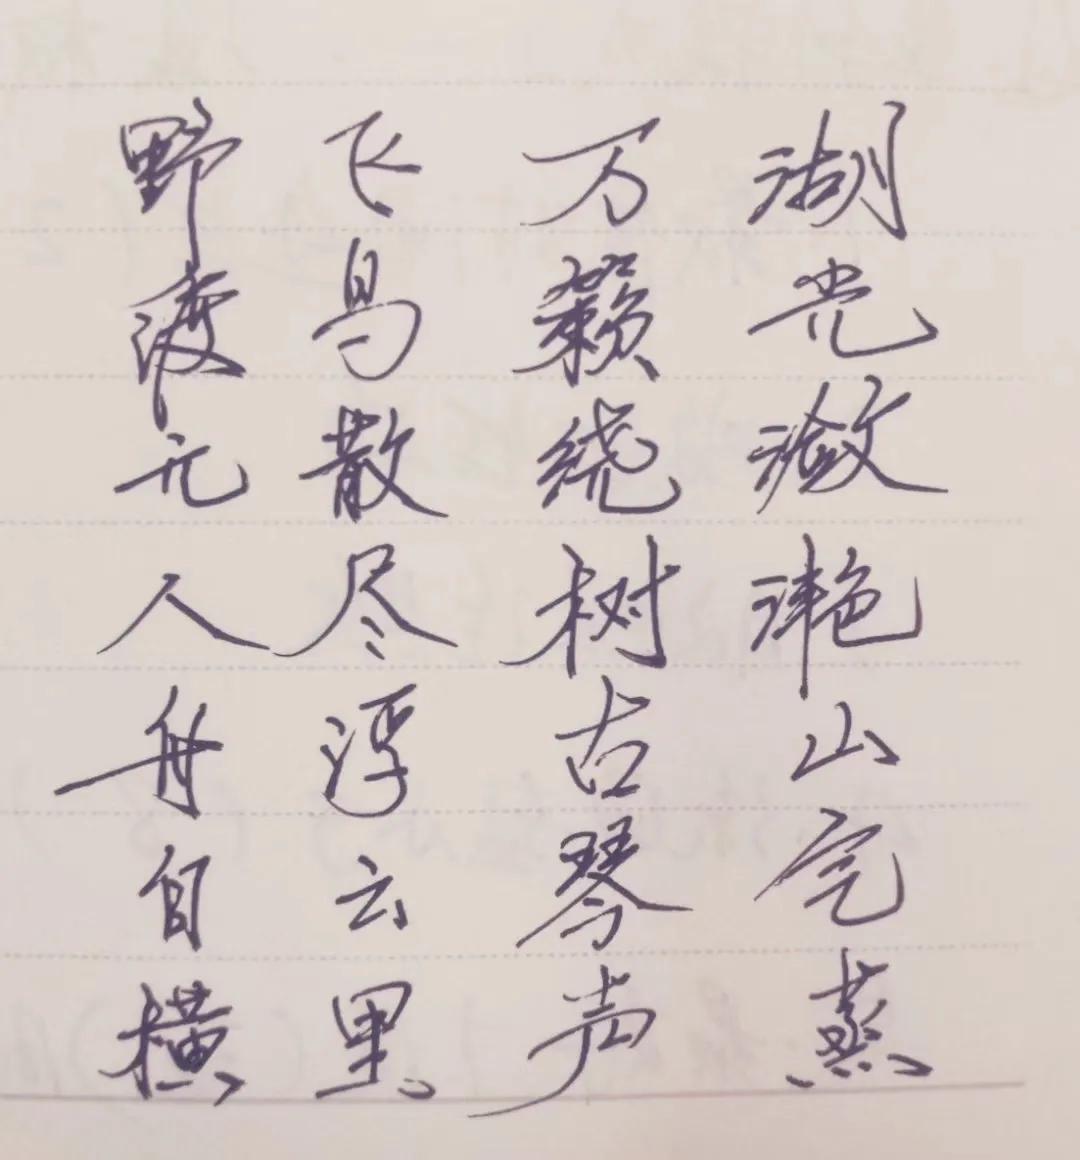 湖光潋滟山气蒸
万籁绕树古琴声
飞鸟散尽浮云里
野渡无人舟自横